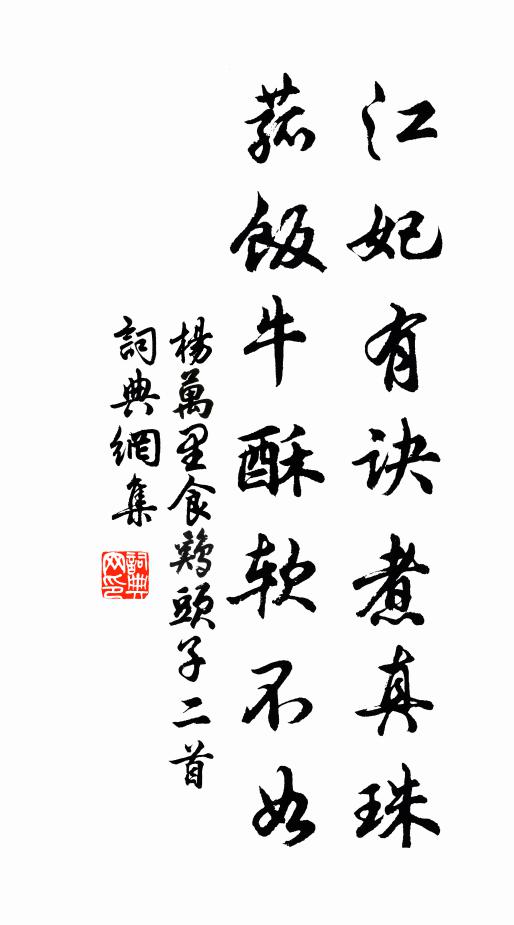 江妃有诀煮真珠
菰飯牛酥软不如
楊萬里食鷄頭子二首
詞典網集
詞典网印